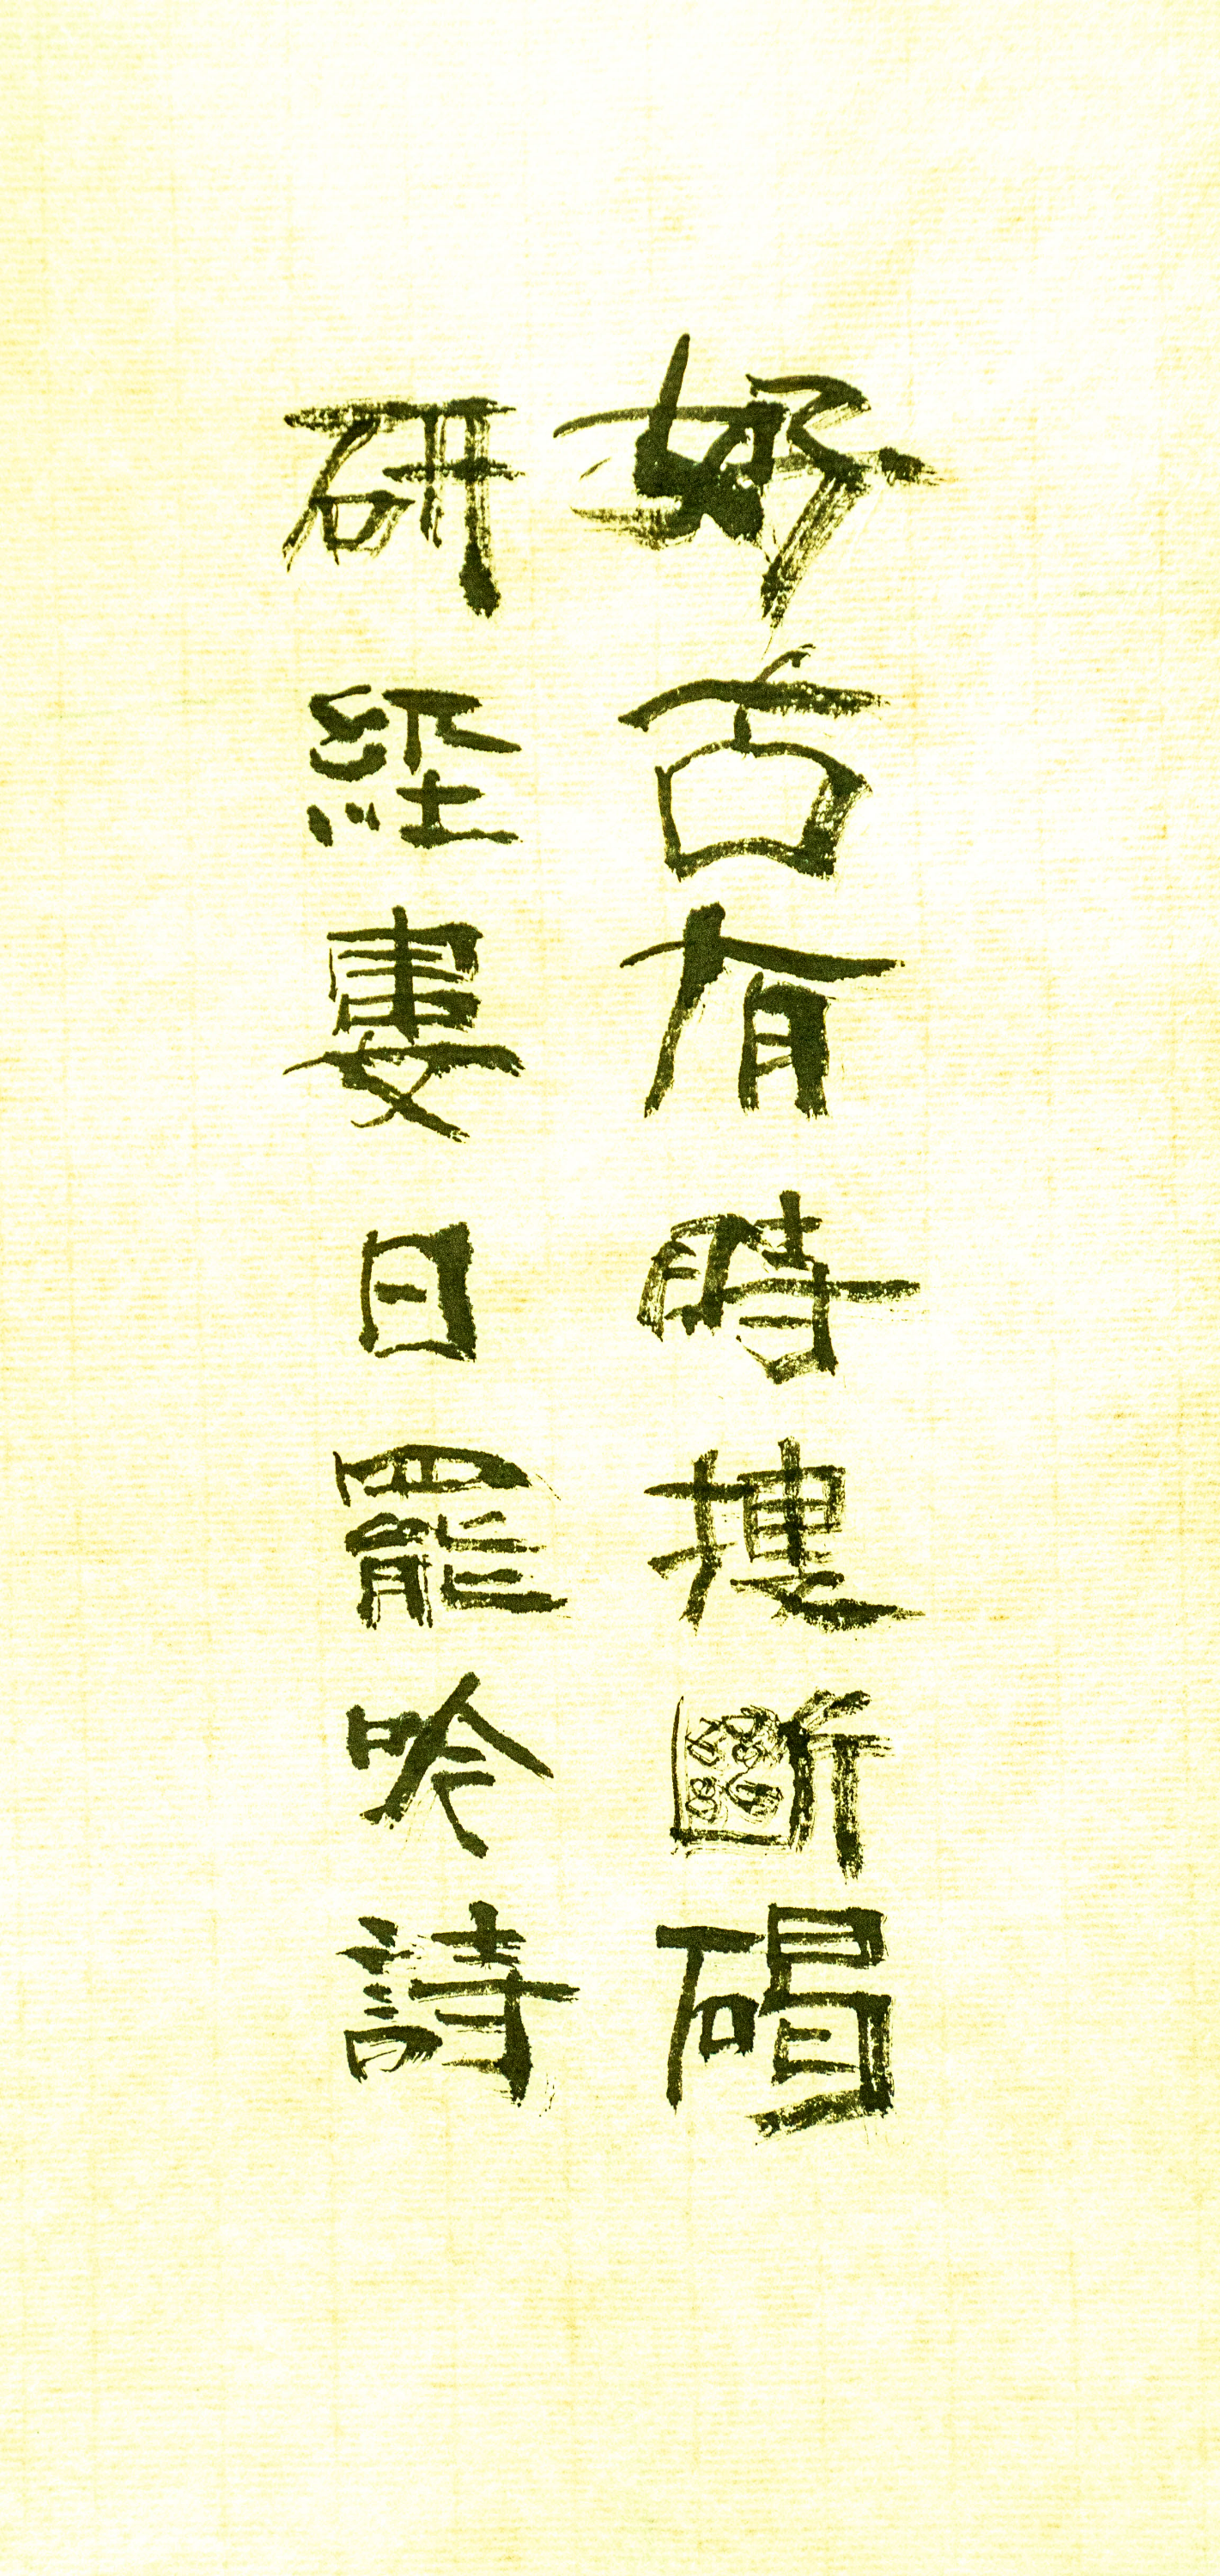 好古有時搜斷碣
研經婁日罷吟詩